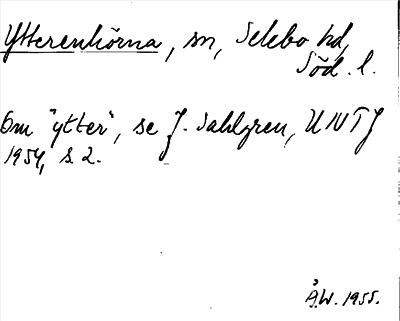 Ytterenhörna, sn, Selebo hd,
Söd. l.
Om "ytter", se J. Sahlgren, UNTJ
1954, s. 2.
Å.W. 1955.